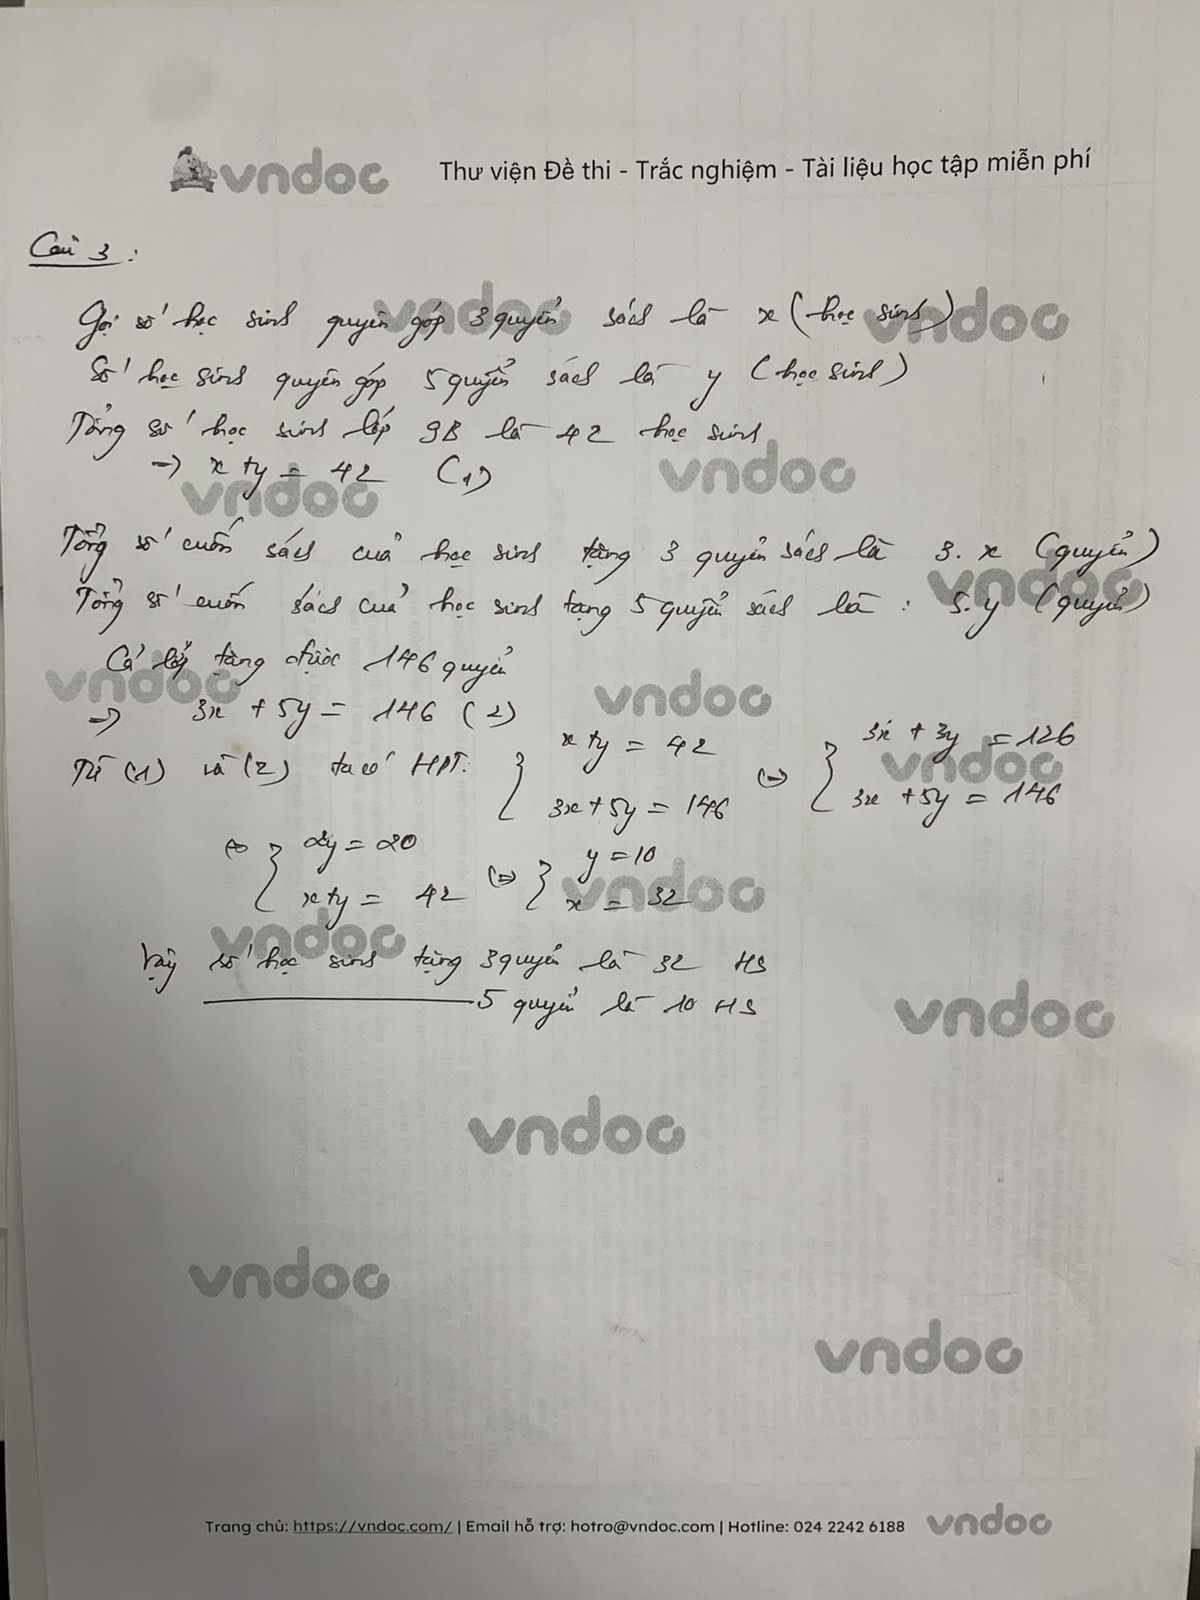 vndoc Thư viện Đề thi - Trắc nghiệm - Tài liệu học tập miễn phí
Câu 3 :
Gọi số học sinh quyên góp 3 quyển sách là x (học sinh)
Số học sinh quyên góp 5 quyển sách là y (học sinh)
Tổng số học sinh lớp 9B là 42 học sinh
=> x + y = 42 (1)
Tổng số cuốn sách của học sinh tặng 3 quyển sách là 3. x (quyển)
Tổng số cuốn sách của học sinh tặng 5 quyển sách là : 5. y (quyển)
Cả lớp tặng được 146 quyển
=> 3x + 5y = 146 (2)
Từ (1) và (2) ta có HPT: { x + y = 42 <=> { 3x + 3y = 126
3x + 5y = 146 3x + 5y = 146
<=> { 2y = 20 <=> { y = 10
x + y = 42 x = 32
Vậy số học sinh tặng 3 quyển là 32 HS
5 quyển là 10 HS
vndoc
vndoc
vndoc
vndoc
vndoc
vndoc
vndoc
vndoc
vndoc
vndoc
vndoc
vndoc
vndoc
vndoc
Trang chủ: https://vndoc.com/ | Email hỗ trợ: hotro@vndoc.com | Hotline: 024 2242 6188 vndoc